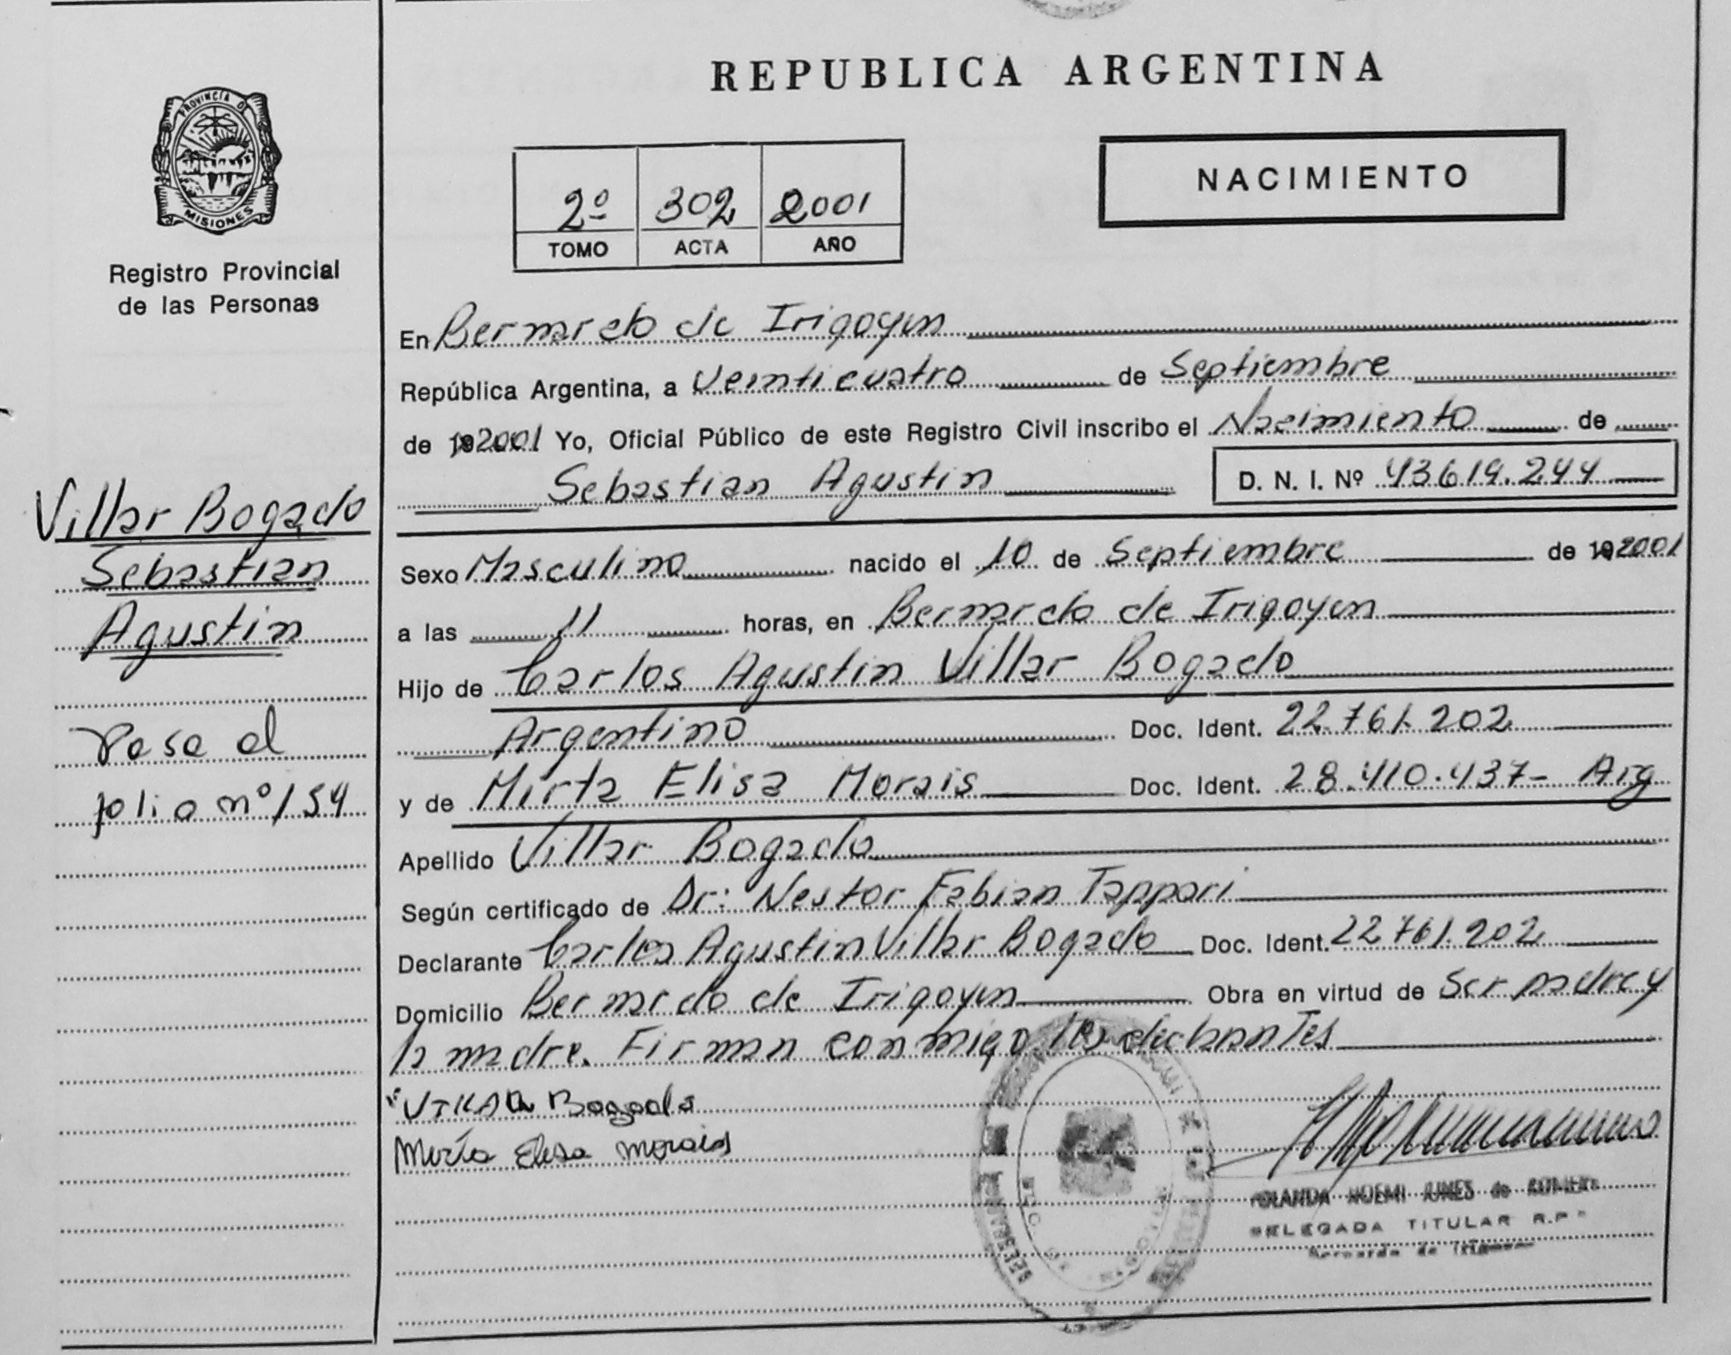 REPUBLICA ARGENTINA
PROVINCIA D
MISIONES
Registro Provincial
de las Personas
2º 302 2001
TOMO ACTA AÑO
NACIMIENTO
En Bernardo de Irigoyen
República Argentina, a Veinticuatro de Septiembre
de 2001 Yo, Oficial Público de este Registro Civil inscribo el Nacimiento de
Sebastian Agustin D. N. I. Nº 43.619.244
Villar Bogado
Sebastian
Agustin
Pase al
folio nº 154
Sexo Masculino nacido el 10 de Septiembre de 2001
a las 11 horas, en Bernardo de Irigoyen
Hijo de Carlos Agustin Villar Bogado
Argentino Doc. Ident. 22.761.202
y de Mirta Elisa Morais Doc. Ident. 28.410.437- Arg
Apellido Villar Bogado
Según certificado de Dr: Nestor Fabian Tappari
Declarante Carlos Agustin Villar Bogado Doc. Ident. 22.761.202
Domicilio Bernardo de Irigoyen Obra en virtud de Ser padre y
la madre. Firman conmigo los declarantes
Bogado
Mirta Elisa Morais
NOEMI de
DELEGADA TITULAR R.P.
Bernardo de Irigoyen